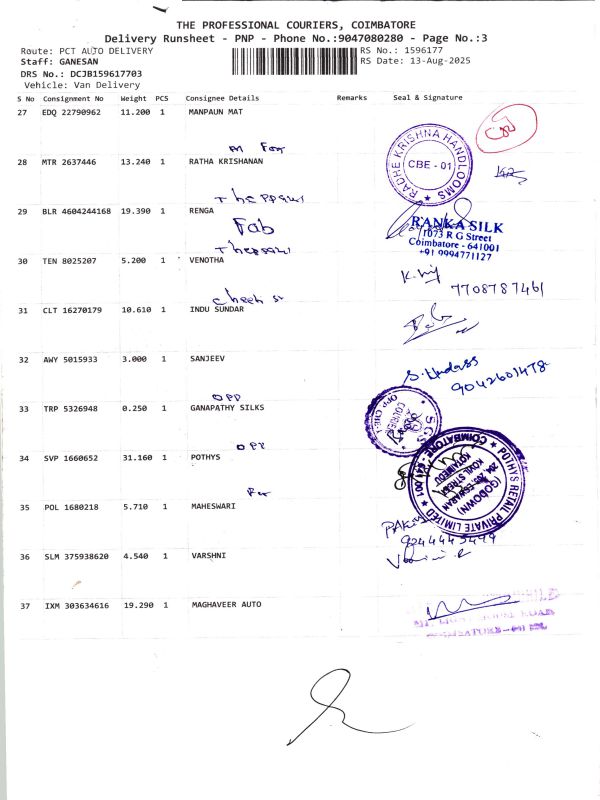 THE PROFESSIONAL COURIERS, COIMBATORE
Delivery Runsheet - PNP - Phone No.:9047080280 - Page No.:3
Route: PCT AUTO DELIVERY
RS No.: 1596177
Staff: GANESAN
RS Date: 13-Aug-2025
DRS No.: DCJB159617703
Vehicle: Van Delivery
S No Consignment No Weight PCS Consignee Details Remarks Seal & Signature
27 EDQ 22790962 11.200 1 MANPAUN MAT
28 MTR 2637446 13.240 1 RATHA KRISHANAN
RADHE KRISHNA HANDLOOMS
CBE - 01
29 BLR 4604244168 19.390 1 RENGA
Fab
RANKA SILK
1073 R G Street
Coimbatore - 641001
+91 9994771127
30 TEN 8025207 5.200 1 VENOTHA
7708787461
31 CLT 16270179 10.610 1 INDU SUNDAR
32 AWY 5015933 3.000 1 SANJEEV
9042601478
OPP
33 TRP 5326948 0.250 1 GANAPATHY SILKS
OPP
34 SVP 1660652 31.160 1 POTHYS
POTHYS RETAIL PRIVATE LIMITED
COIMBATORE - 641 001
(GODOWN)
35 POL 1680218 5.710 1 MAHESWARI
36 SLM 375938620 4.540 1 VARSHNI
37 IXM 303634616 19.290 1 MAGHAVEER AUTO